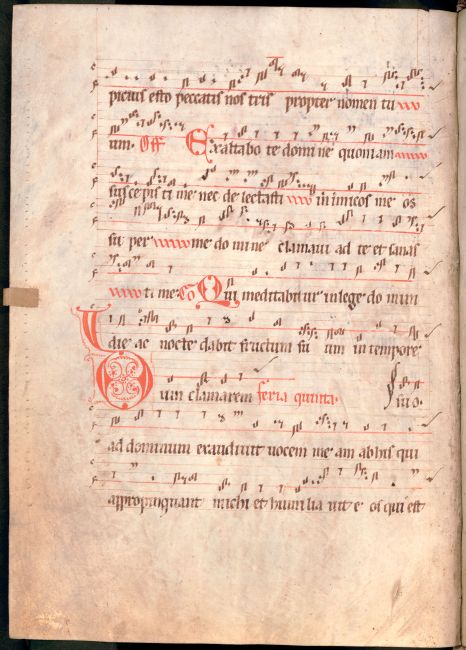 picius esto peccatis nostris propter nomen tu
um. Off Exaltabo te domine quoniam
suscepisti me nec delectasti inimicos meos
super me domine clamavi ad te et sanas
ti me Co Qui meditabitur in lege domini
die ac nocte dabit fructum suum in tempore
Dum clamarem feria quinta. suo.
ad dominum exaudivit vocem meam ab his qui
appropinquant michi et humiliavit eos qui est